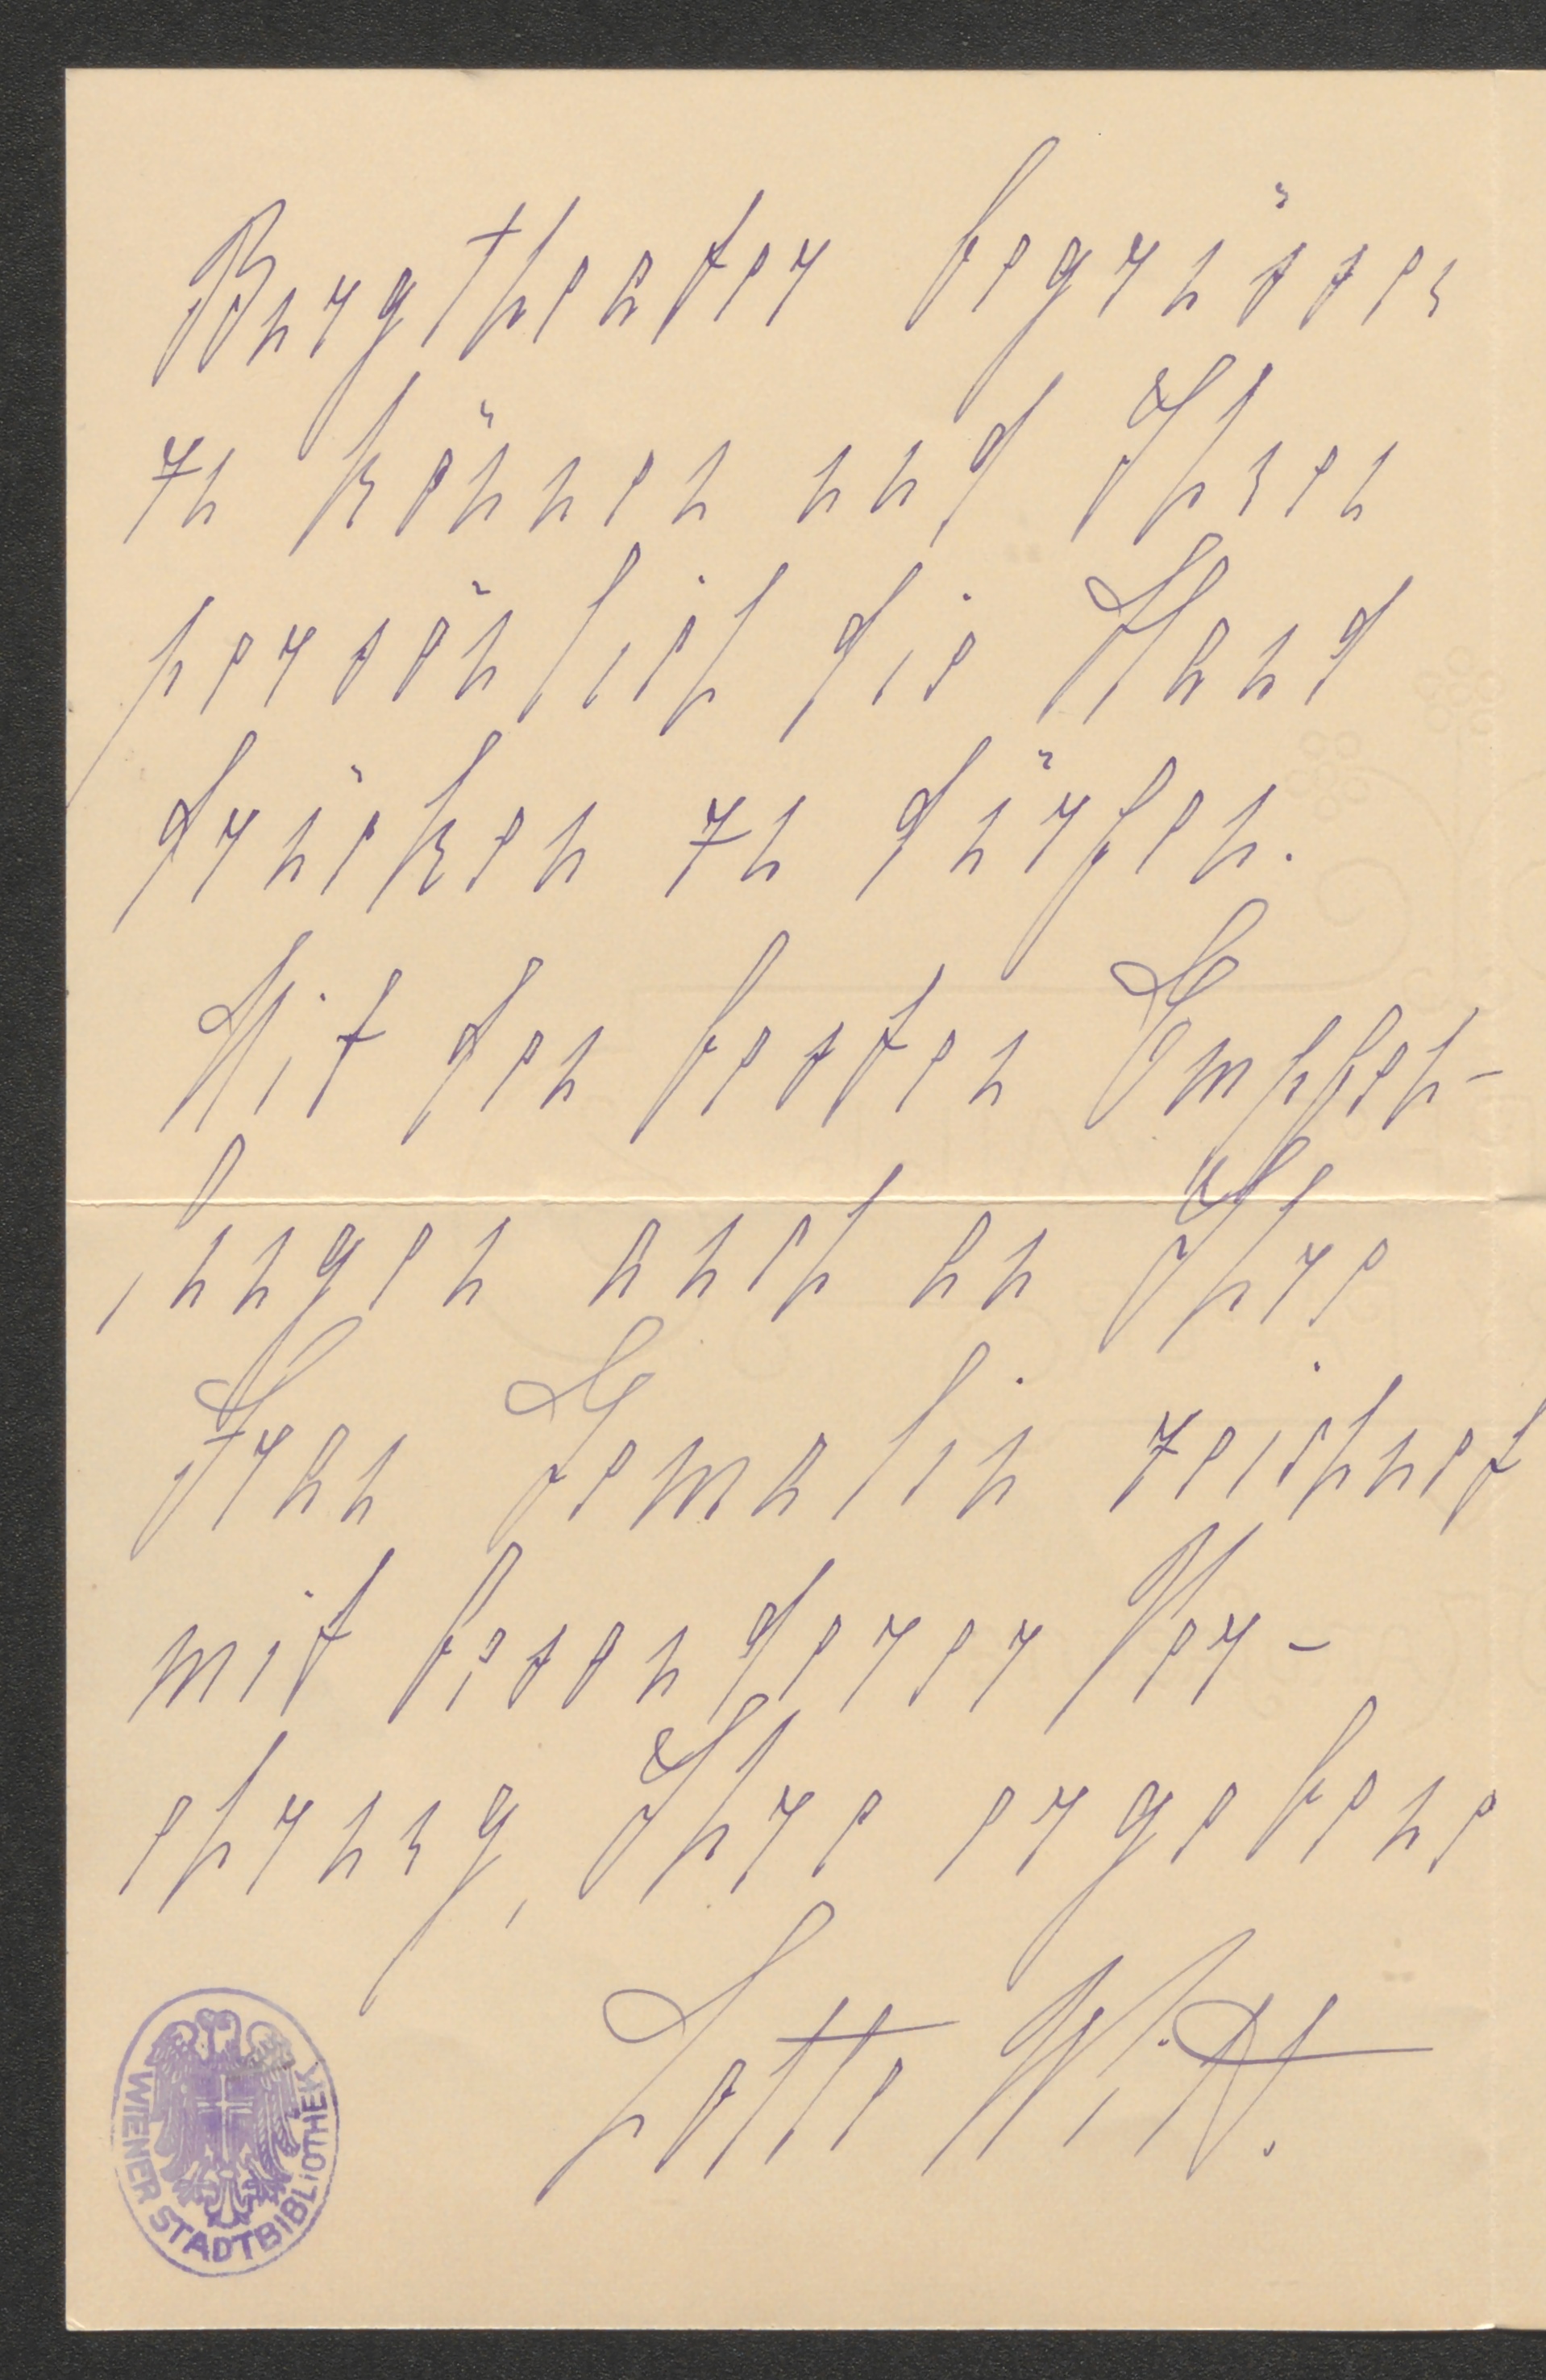 Burgtheater begrüssen
zu können und Ihnen
persönlich die Hand
drücken zu dürfen.
Mit den besten Empfeh-
lungen auch an Ihre
Frau Gemalin zeichnet
mit besonderer Ver-
ehrung, Ihre ergebene
Lotte Witt.
WIENER STADTBIBLIOTHEK